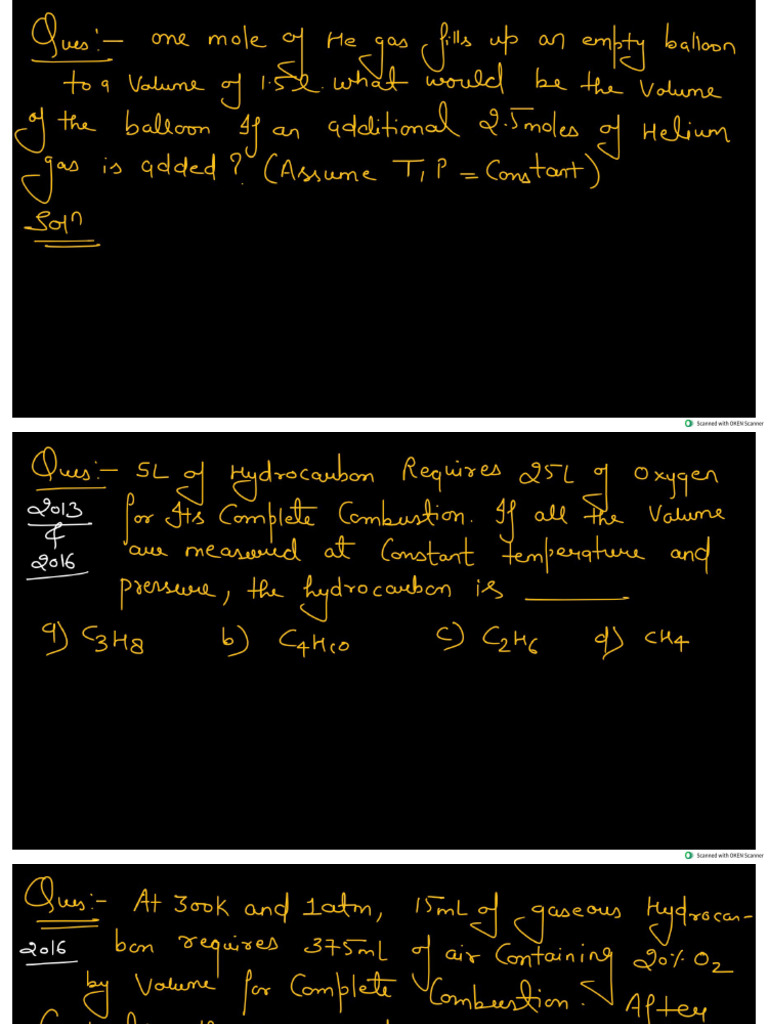 Ques:- one mole of He gas fills up an empty balloon
to a Volume of 1.5l. what would be the Volume
of the balloon If an additional 2.5 moles of Helium
gas is added? (Assume T, P = Constant)
Solⁿ
Scanned with OKEN Scanner
Ques:- 5L of Hydrocarbon Requires 25L of Oxygen
2013 & 2016
for Its Complete Combustion. If all the Volume
are measured at Constant temperature and
pressure, the hydrocarbon is ______
a) C3H8 b) C4H10 c) C2H6 d) CH4
Scanned with OKEN Scanner
Ques:- At 300K and 1atm, 15mL of gaseous Hydrocar-
2016
bon requires 375mL of air Containing 20% O2
by Volume for Complete Combustion. After